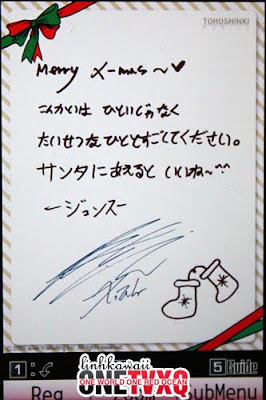 TOHOSHINKI
Merry X-mas~♥
こんかいは ひとりじゃなく
たいせつなひととすごしてください。
サンタにあえると いいね~^^
ージュンスー
Xiah
1: 5 Guide
linhkawaii
ONETVXQ
ONE WORLD ONE RED OCEAN
Reg SubMenu